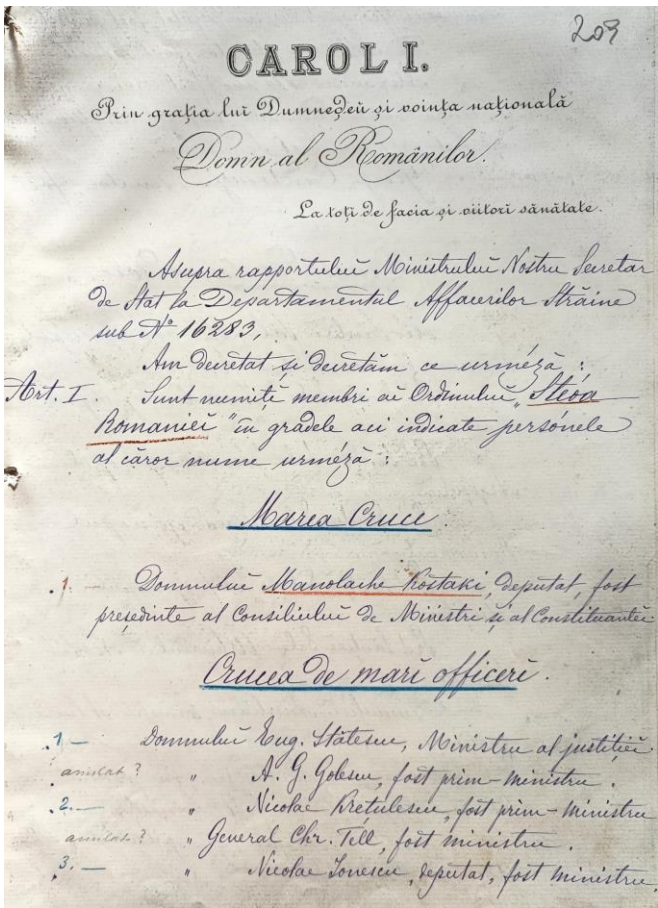 209
CAROL I.
Prin grația lui Dumnezeŭ și voința națională
Domn al Românilor.
La toți de facia și viitorĭ sănătate.
Asupra rapportuluĭ Ministruluĭ Nostru Secretar
de Stat la Departamentul Affacerilor Străine
sub Nº 16283,
Am decretat și decretăm ce urméză :
Art. I. Sunt numițĭ membri aĭ Ordinuluĭ „Steoa
Romanieĭ" în gradele aci indicate persónele
al căror nume urméză :
Marea Cruce.
1. — Domnuluĭ Manolache Kostaki, deputat, fost
președinte al Consiliuluĭ de Miniștri și al Constituanteĭ
Crucea de marĭ officerĭ.
1 — Domnuluĭ Eug. Stătescu, Ministru al justițieĭ.
anulat ? " A. G. Golescu, fost prim-ministru.
2. — " Nicolae Kretulescu, fost prim-ministru
anulat ? " General Chr. Tell, fost ministru.
3. — " Nicolae Ionescu, deputat, fost ministru,